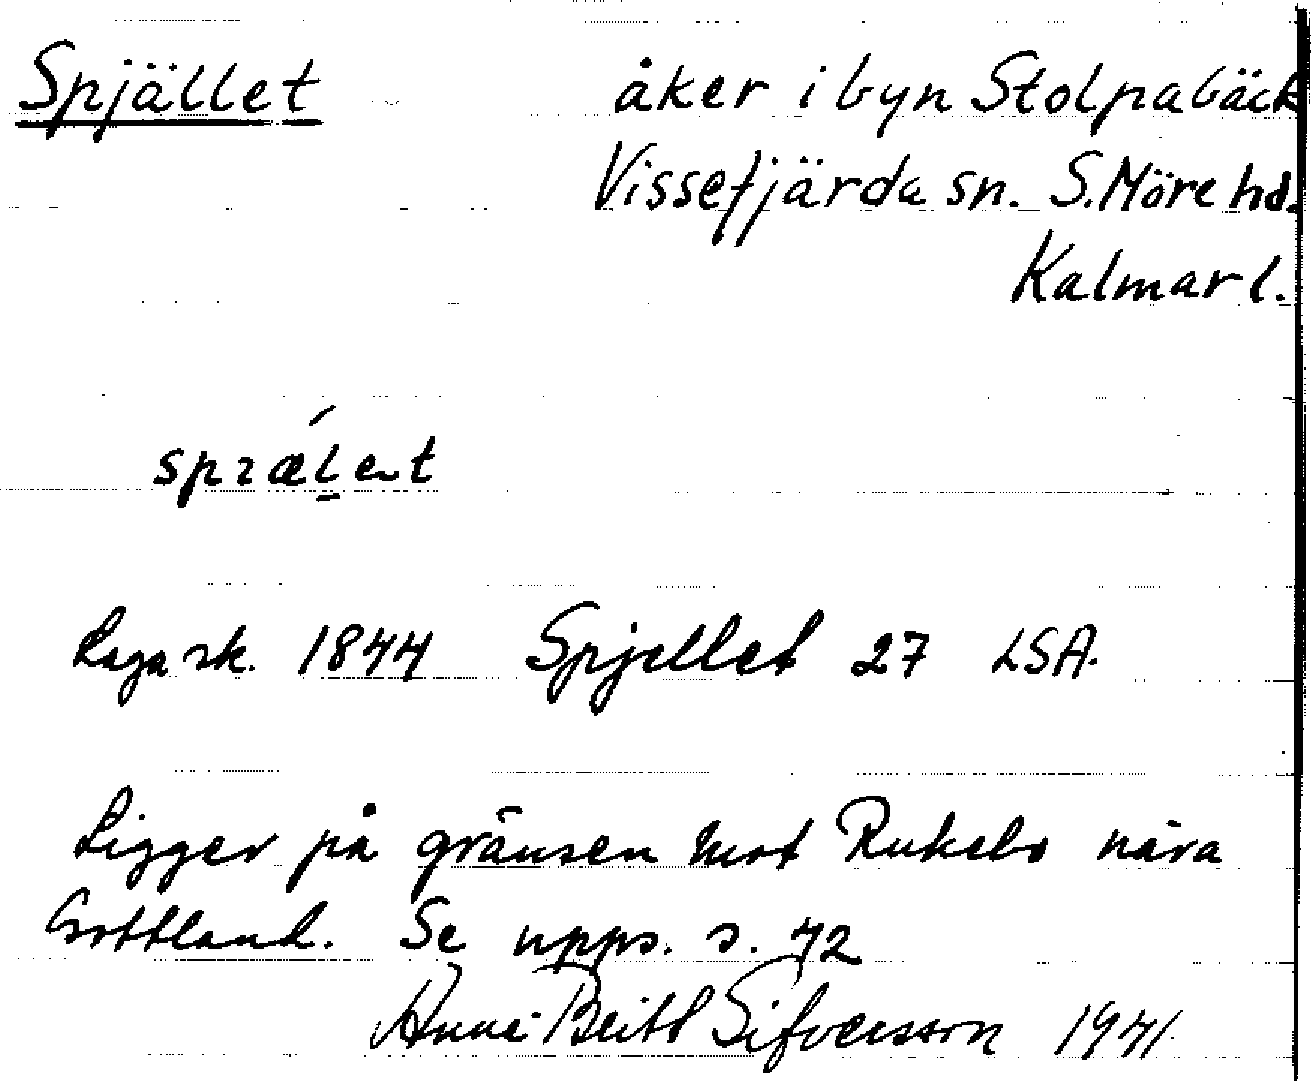 Spjället åker i byn Stolpabäck
Vissefjärda sn. S. Möre hd.
Kalmar l.
Laga sk. 1844 Spjellet 27 LSA.
Ligger på gränsen mot Rukebo nära
Gottland. Se upps. s. 72
Anna-Britt Sifversson 1941